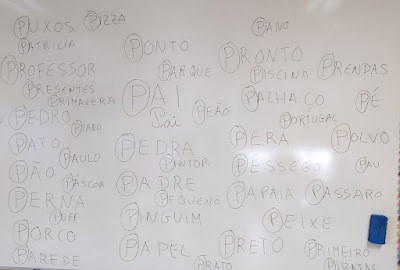 PUXOS
PIZZA
PANO
PATRICIA
PONTO
PRONTO
PROFESSOR
PARQUE
PISCINA
PRENDAS
PRESENTES
PRIMAVERA
PAI
PALHAÇO
PÉ
Pai
PEÃO
PORTUGAL
PEDRO
PIANO
PERA
POLVO
PATO
PAULO
PEDRA
PINTOR
PÊSSEGO
PAU
PÃO
PÁSCOA
PADRE
PAPAIA
PASSARO
PERNA
PEQUENO
PUFF
PINGUIM
PEIXE
PORCO
PAPEL
PRETO
PRIMEIRO
PAREDE
PRATO
PIRATAS